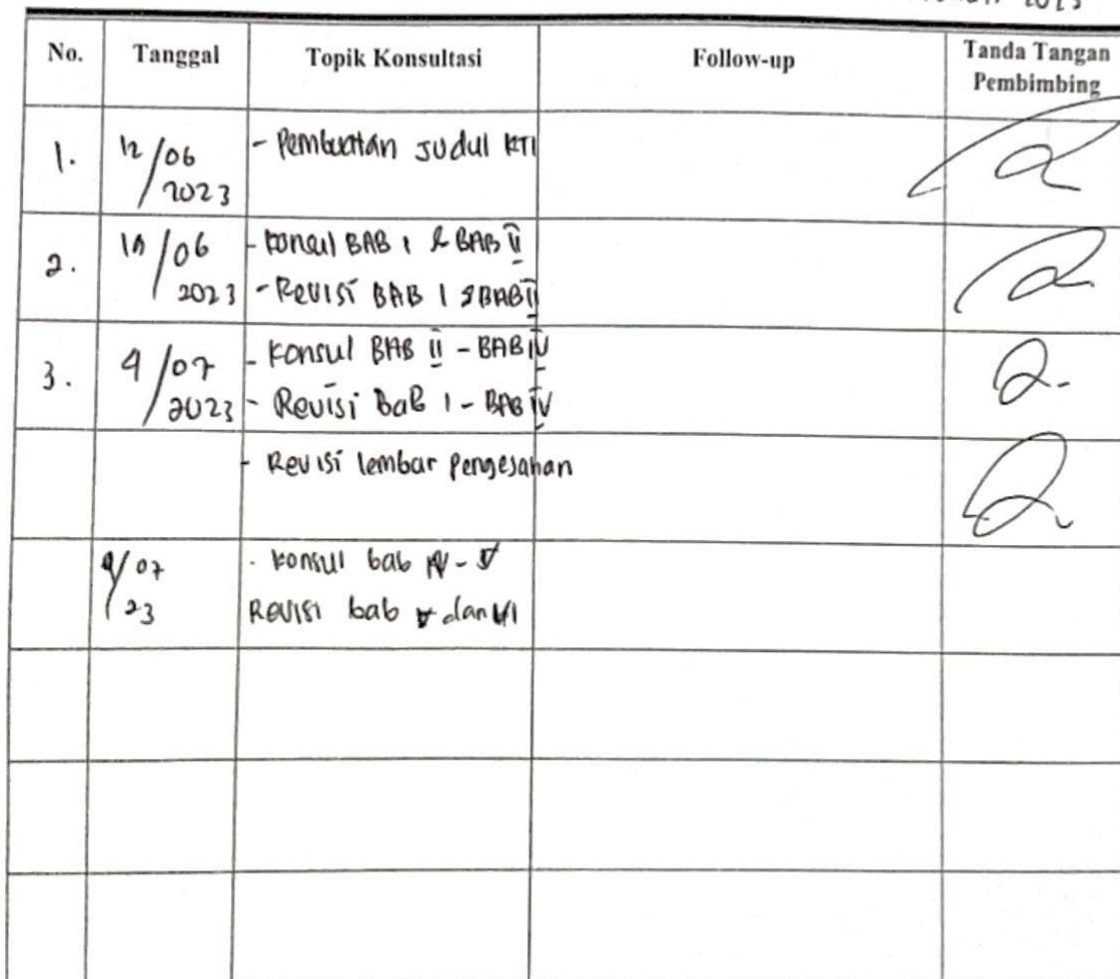 2023
No. Tanggal Topik Konsultasi Follow-up Tanda Tangan
Pembimbing
1. 12/06 - Pembuatan judul KTI
2023
2. /06 - konsul BAB I & BAB II
2023 - Revisi BAB I & BAB II
3. /07 - Konsul BAB II - BAB IV
2023 - Revisi BaB I - BAB IV
- Revisi lembar Pengesahan
/07 - konsul bab IV - V
23 Revisi bab V dan VI